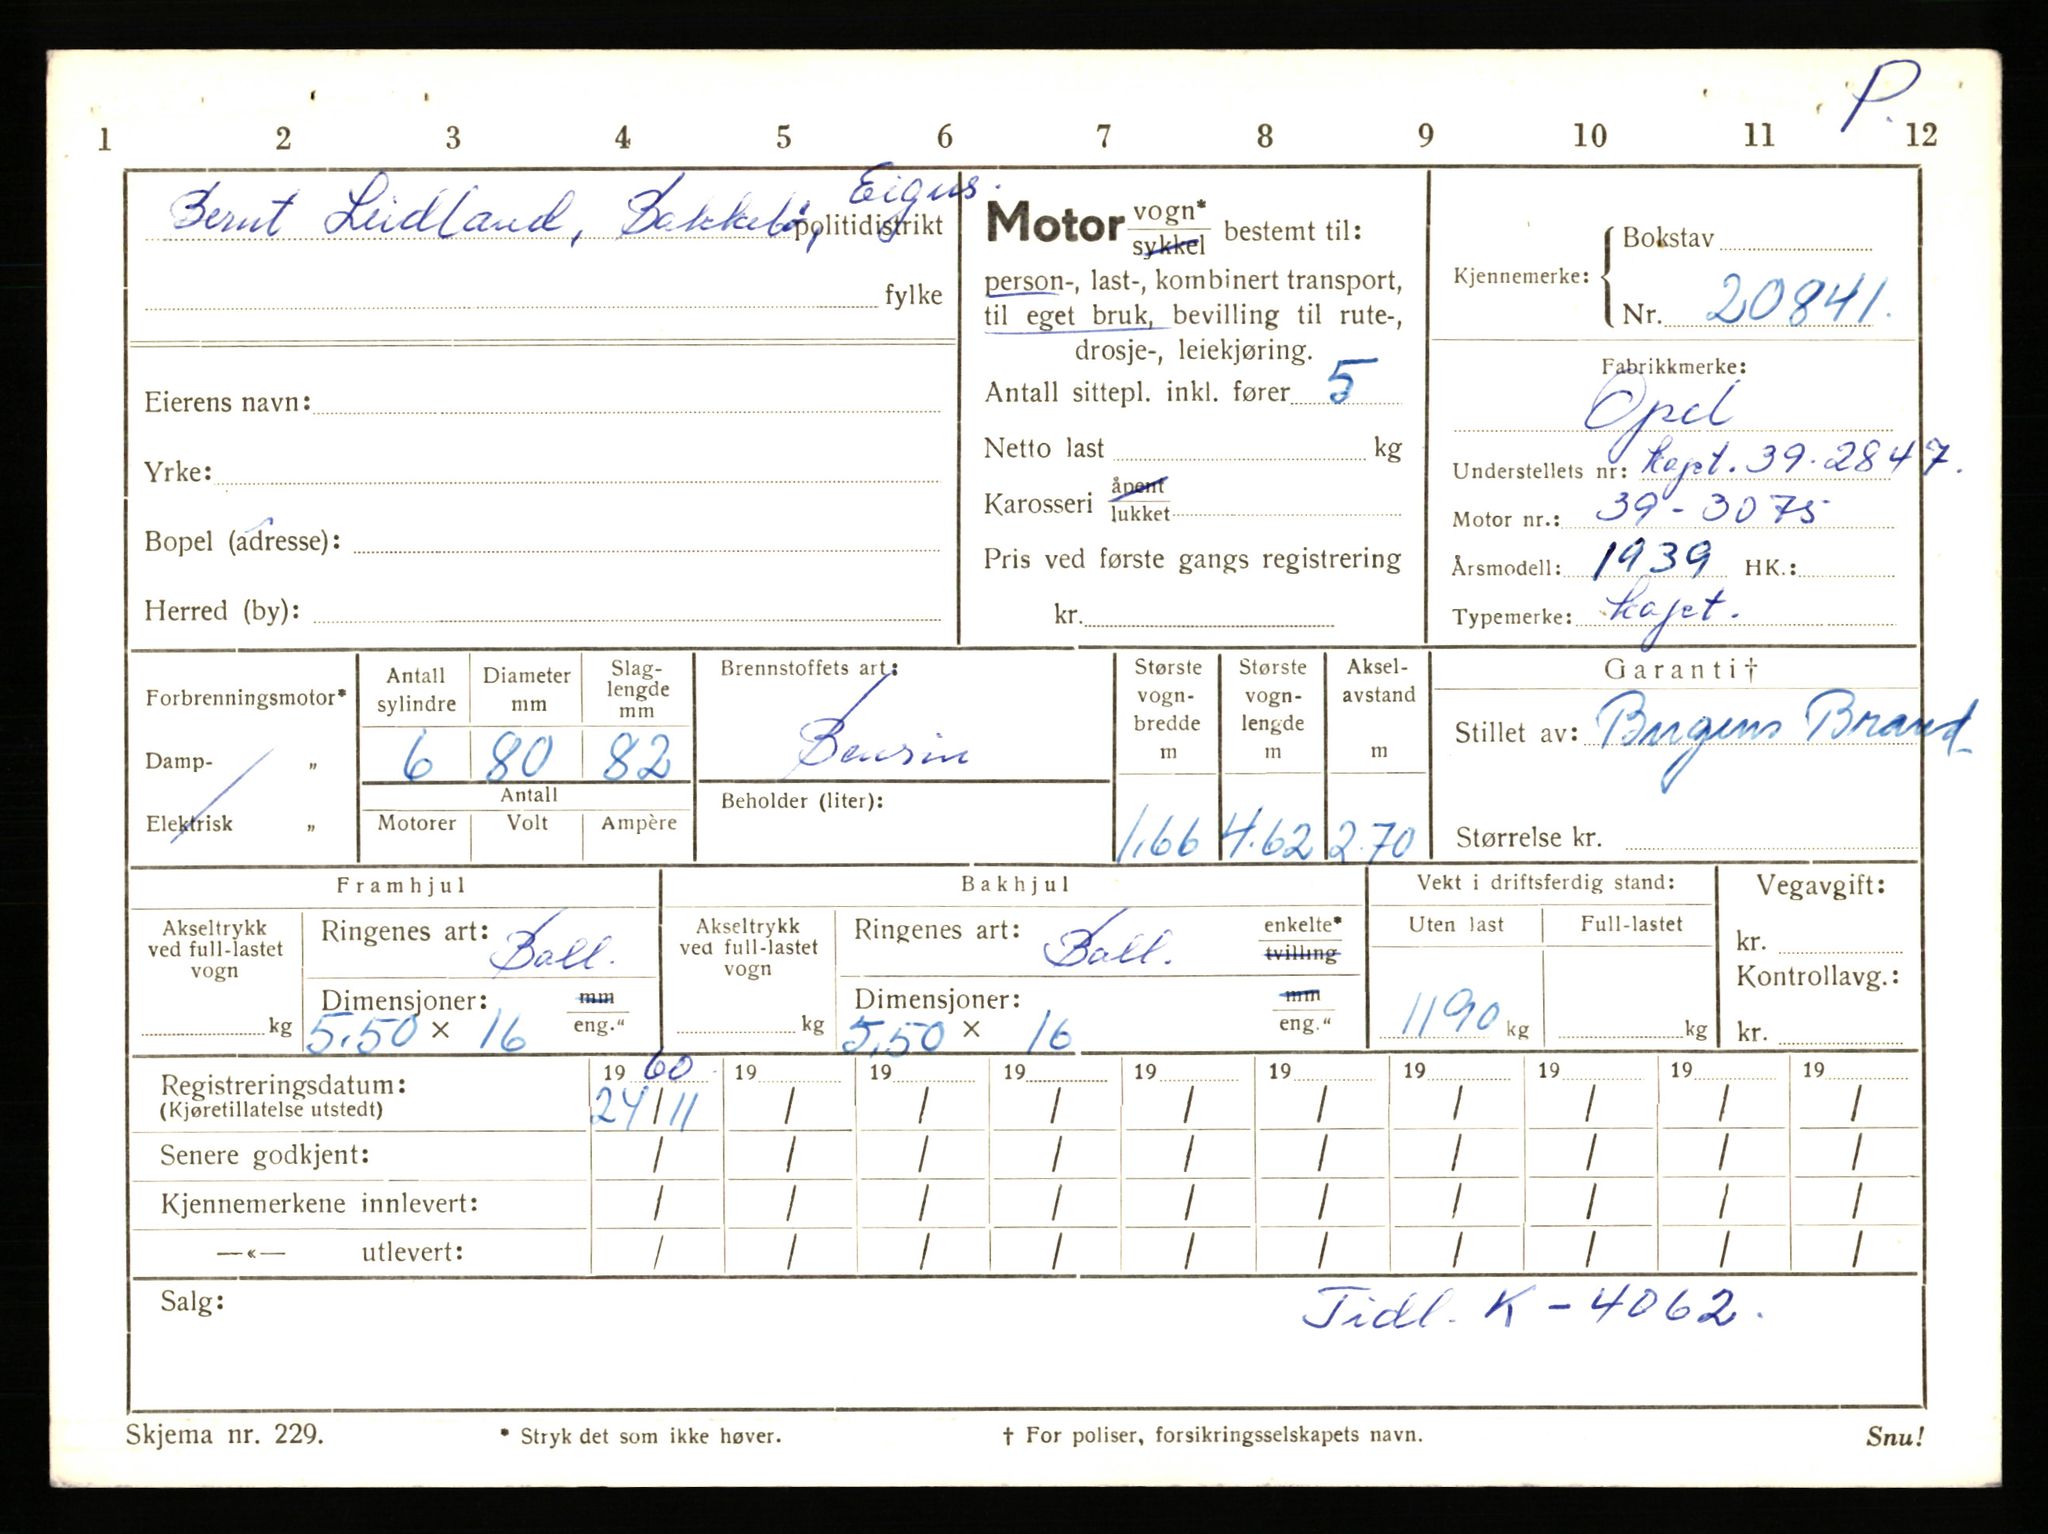 P.
1 2 3 4 5 6 7 8 9 10 11 12
Bernt Leidland, Bakkebø, Eigus. politidistrikt
fylke
Eierens navn:
Yrke:
Bopel (adresse):
Herred (by):
Motor vogn* / sykkel bestemt til:
person-, last-, kombinert transport,
til eget bruk, bevilling til rute-,
drosje-, leiekjøring.
Antall sittepl. inkl. fører 5
Netto last kg
Karosseri åpent / lukket
Pris ved første gangs registrering
kr.
Kjennemerke: Bokstav
Nr. 20841.
Fabrikkmerke:
Opel
Understellets nr: Kapt. 39-2847.
Motor nr.: 39-3075
Årsmodell: 1939 HK.:
Typemerke: Kapt.
Forbrenningsmotor*
Damp- „
Elektrisk „
Antall sylindre Diameter mm Slag-lengde mm
6 80 82
Antall
Motorer Volt Ampère
Brennstoffets art:
Bensin
Beholder (liter):
Største vogn-bredde m Største vogn-lengde m Aksel-avstand m
1,66 4.62 2.70
Garanti†
Stillet av: Brand
Størrelse kr.
Framhjul
Akseltrykk ved full-lastet vogn
kg
Ringenes art: Ball.
Dimensjoner: mm / eng.“
5,50 × 16
Bakhjul
Akseltrykk ved full-lastet vogn
kg
Ringenes art: Ball. enkelte* / tvilling
Dimensjoner: mm / eng.“
5,50 × 16
Vekt i driftsferdig stand:
Uten last Full-lastet
1190 kg kg
Vegavgift:
kr.
Kontrollavg.:
kr.
Registreringsdatum: 19 60 19 19 19 19 19 19 19 19 19
(Kjøretillatelse utstedt) 24/11 / / / / / / / / /
Senere godkjent: / / / / / / / / / /
Kjennemerkene innlevert: / / / / / / / / / /
—«— utlevert: / / / / / / / / / /
Salg:
Tidl. K-4062.
Skjema nr. 229. * Stryk det som ikke høver. † For poliser, forsikringsselskapets navn. Snu!